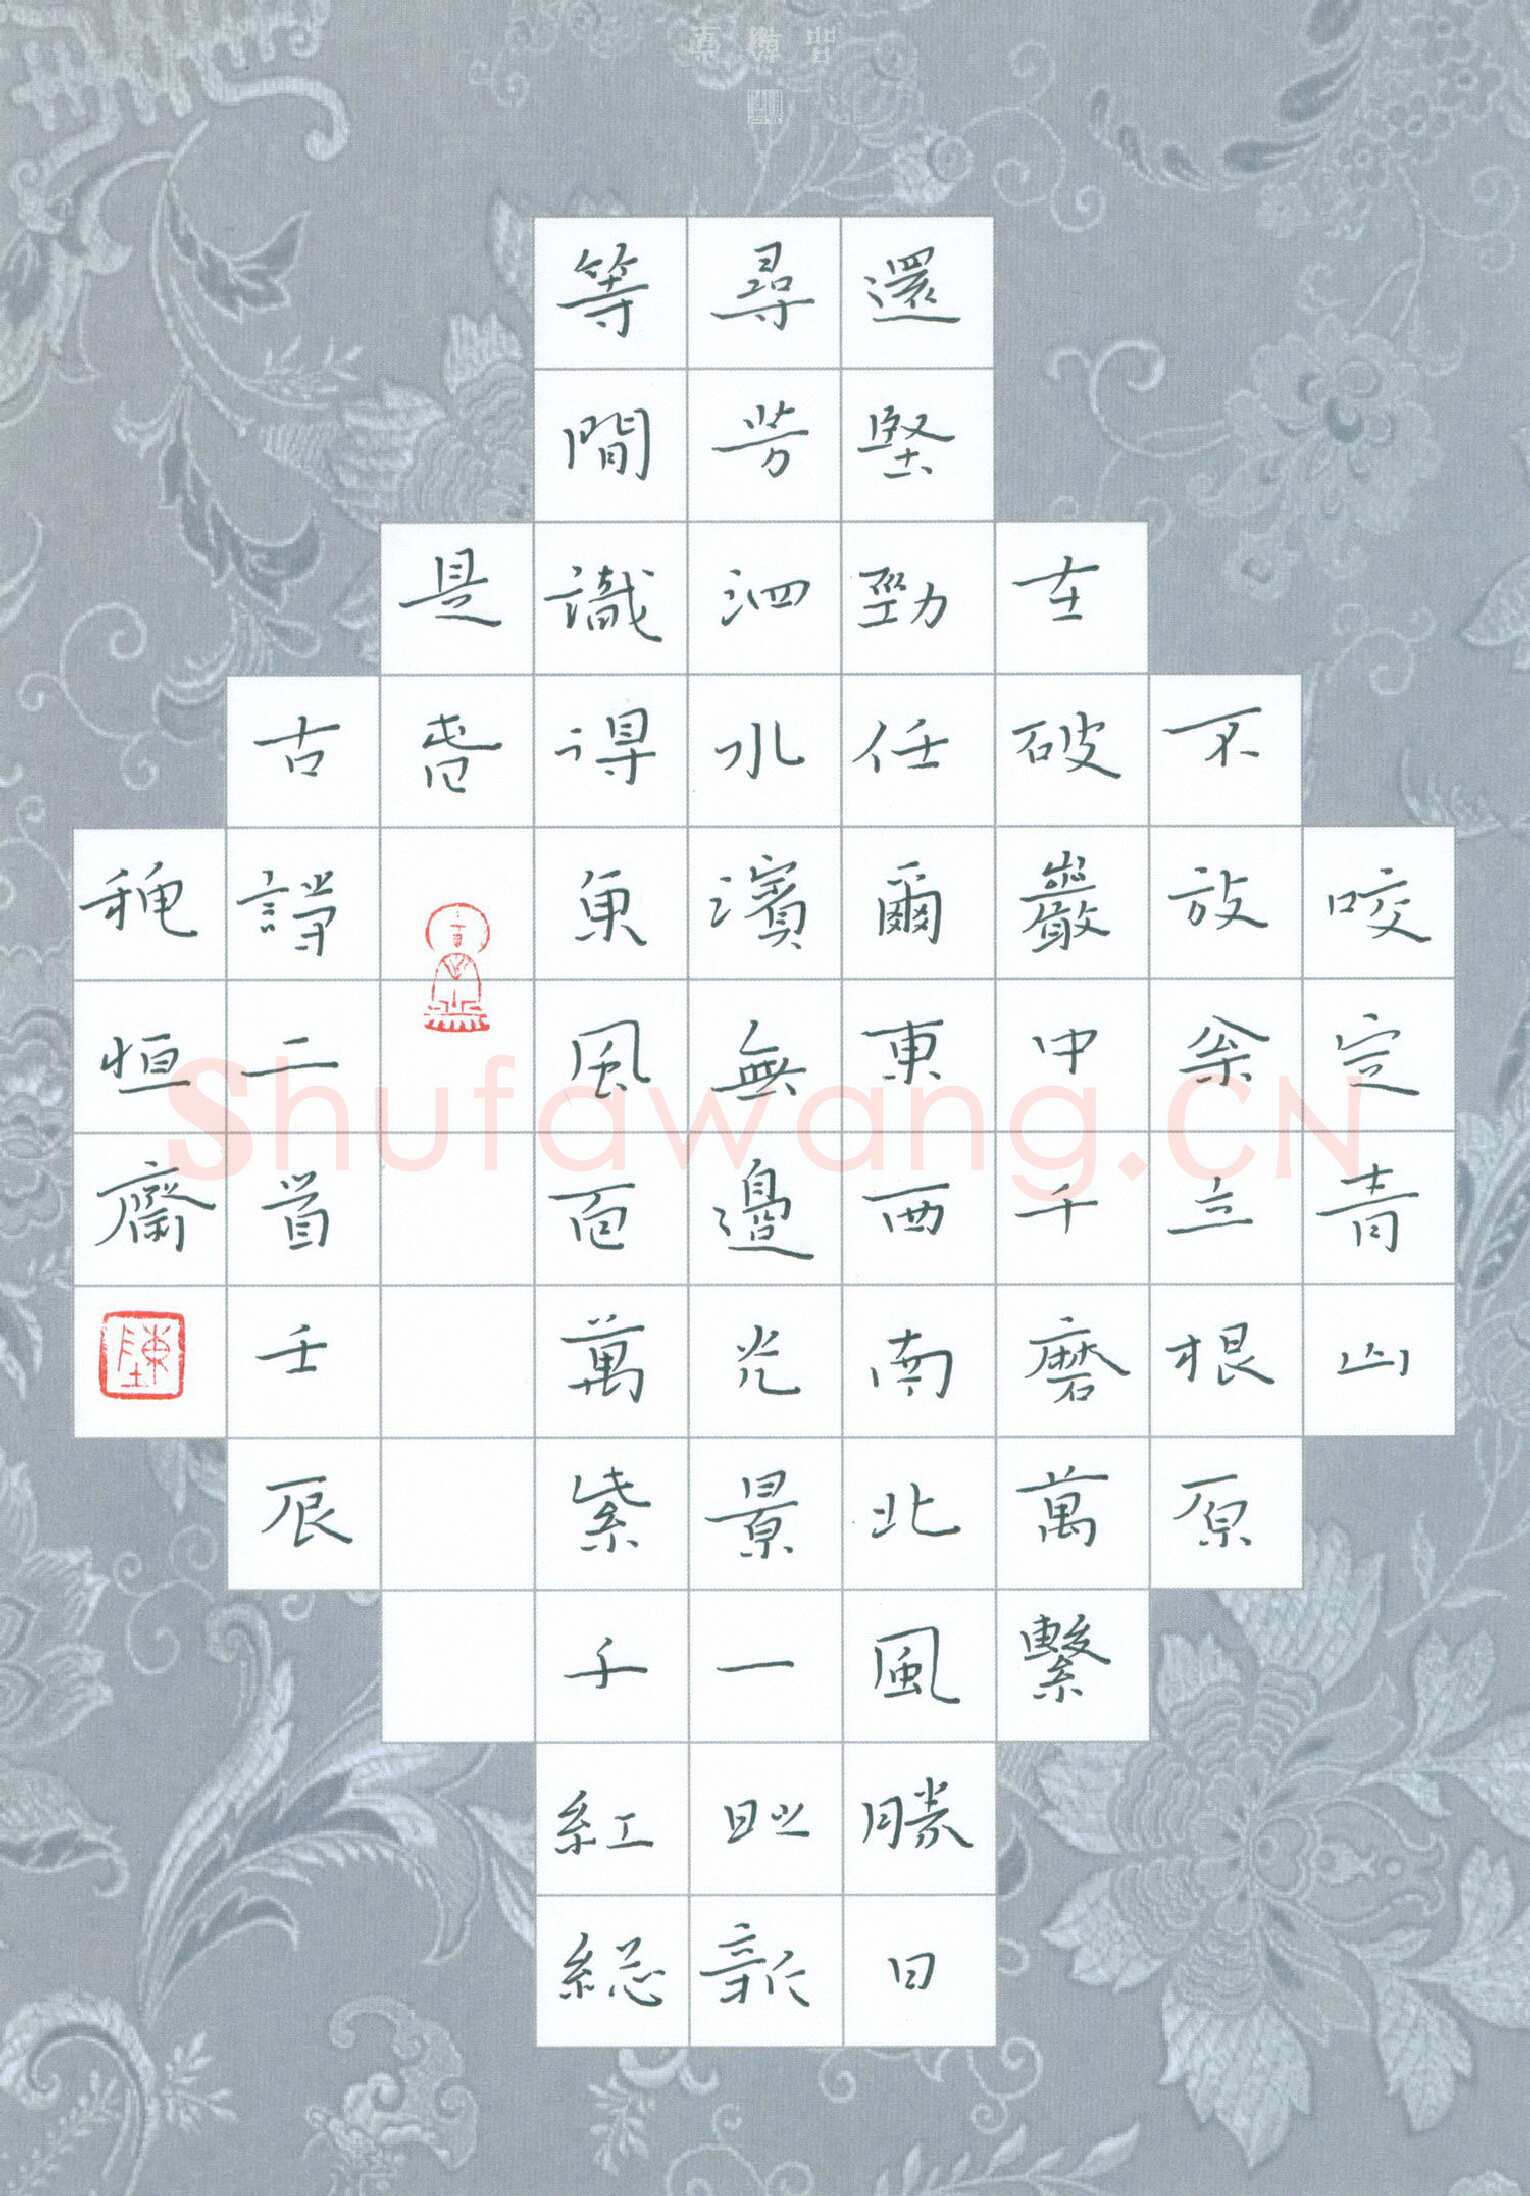 咬定青山
不放枀立根原
在破巖中千磨萬繫
還堅勁任爾東西南北風勝日
尋芳泗水濱無邊光景一時新
等間識得東風面萬紫千紅総
是春
古詩二首壬辰
穐恒齋
陳
Shufawang.CN